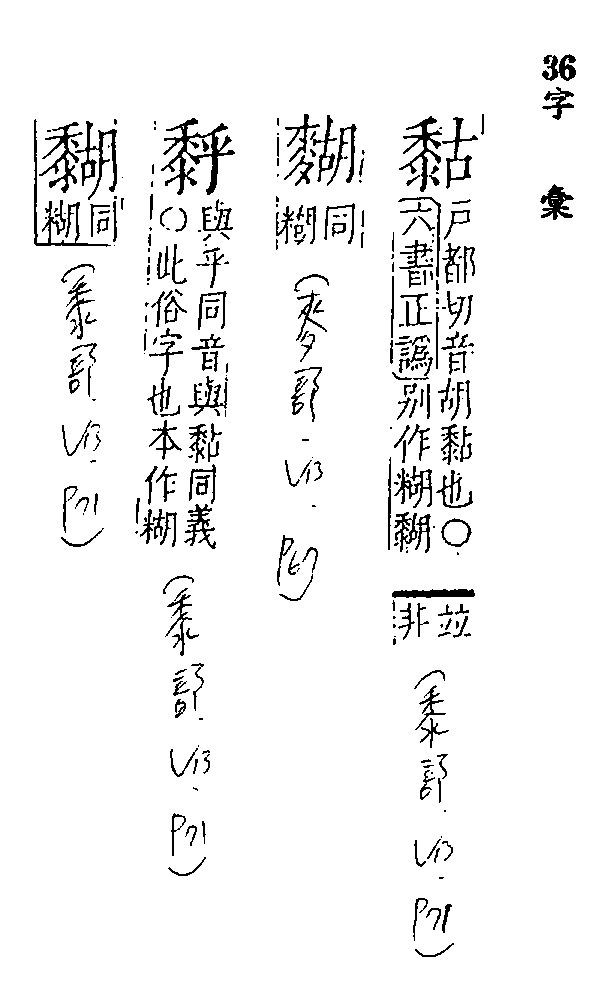 36字彙
𪏻
戶都切音胡黏也○
六書正譌別作糊
竝
非
(黍部.V13.P71)
同
糊
(麥部.V13.P67)
與乎同音與黏同義
○此俗字也本作糊
(黍部.V13.P71)
同
糊
(黍部.V13.P71)